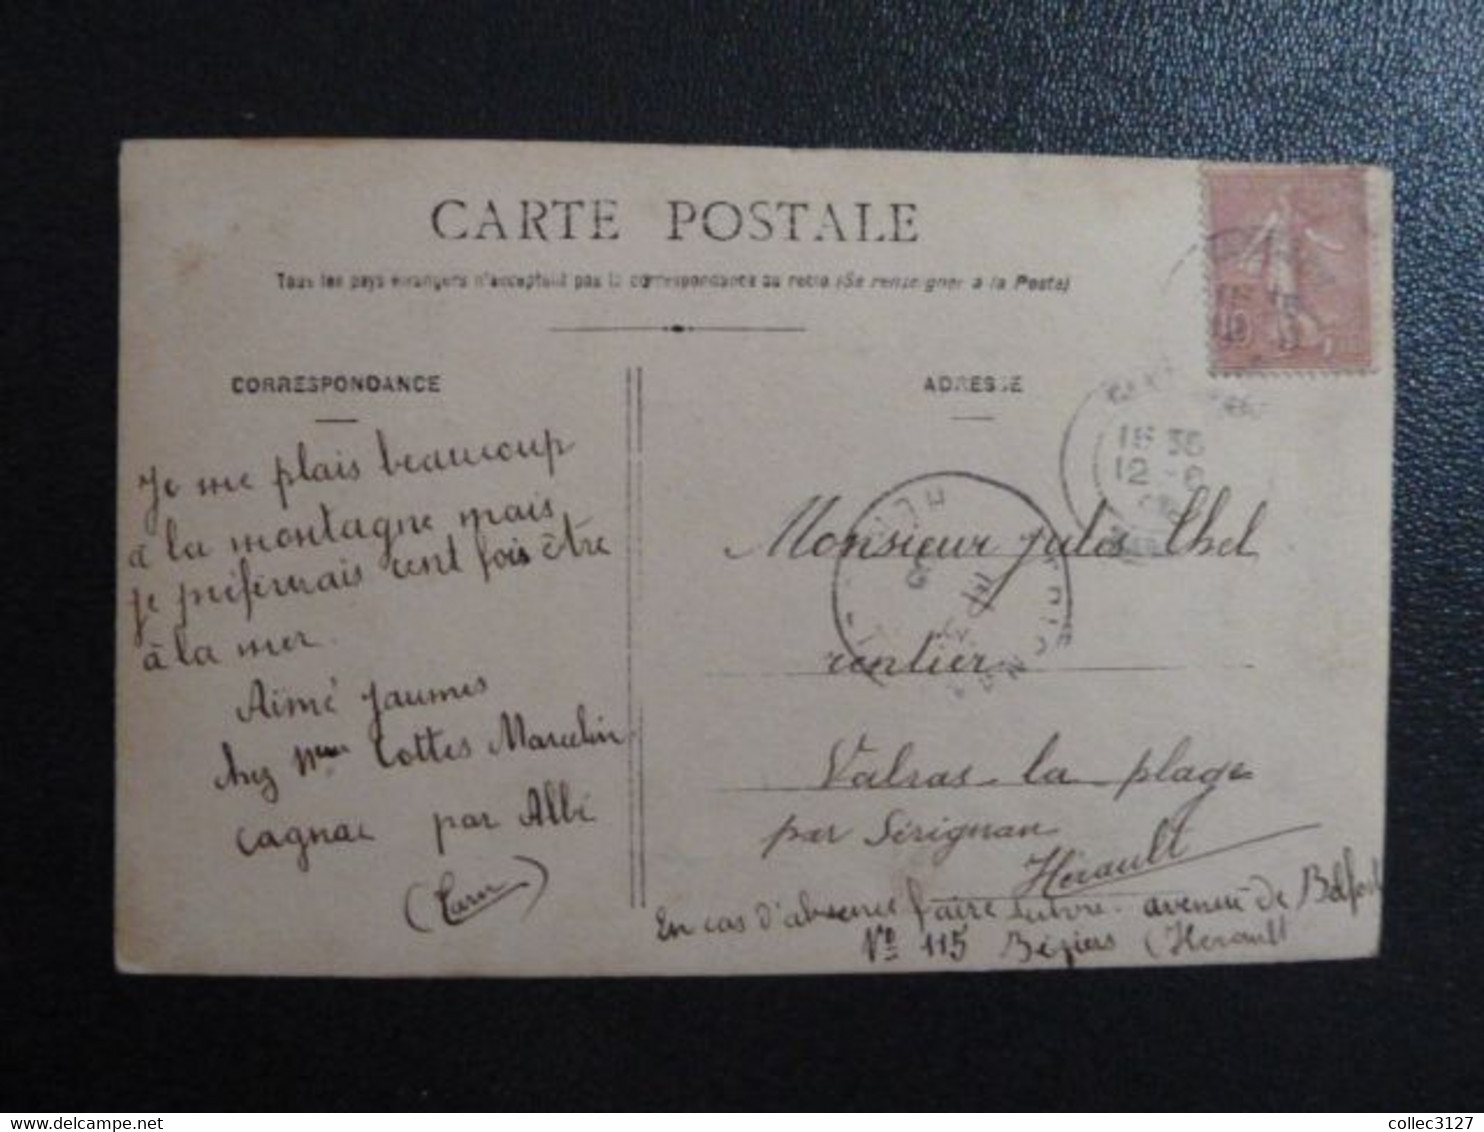 CARTE POSTALE
Tous les pays étrangers n'acceptent pas la correspondance au recto (Se renseigner à la Poste)
CORRESPONDANCE
ADRESSE
Je me plais beaucoup
à la montagne mais
je préfèrerais cent fois être
à la mer.
Aimé Jaumes
chez Mme Cottes Marcelin
Cagnac par Albi
(Tarn)
15 35
12 - 8
Monsieur Jules Chel
rentier
Valras-la-plage
par Sérignan
Hérault
En cas d'absence faire suivre. avenue de Belfort
No 115 Béziers (Herault
collec3127